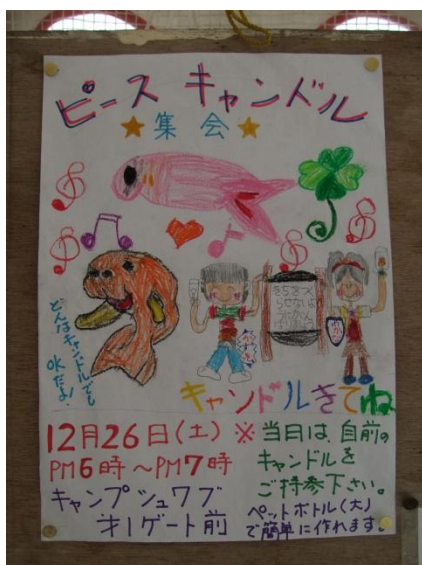 ピース キャンドル
★集会★
どんなキャンドルでも
OKだよ!
キャンドルきてね
12月26日(土)
PM6時~PM7時
キャンプシュワブ
オ1ゲート前
※当日は、自前の
キャンドルを
ご持参下さい。
ペットボトル(大)
で簡単に作れます。